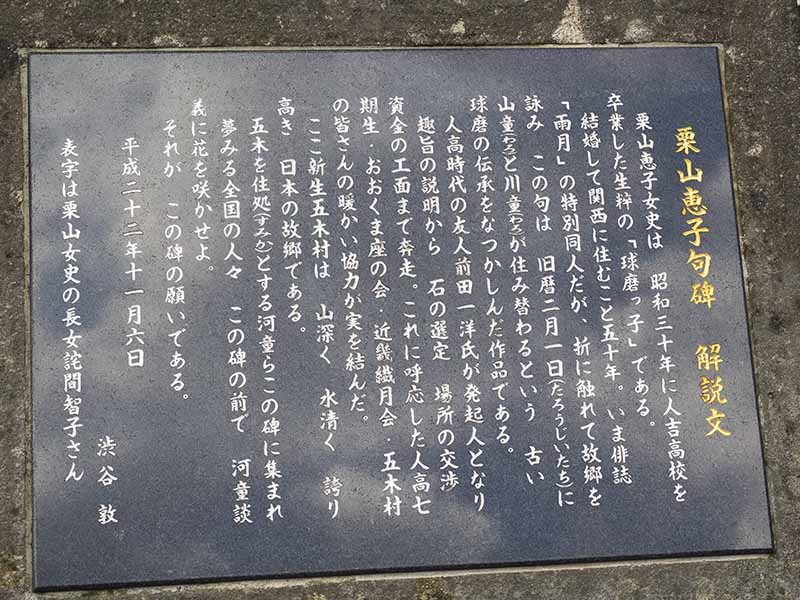 栗山恵子句碑　解説文
栗山恵子女史は　昭和三十年に人吉高校を
卒業した生粋の「球磨っ子」である。
結婚して関西に住むこと五十年。いま俳誌
「雨月」の特別同人だが、折に触れて故郷を
詠み　この句は　旧暦二月一日(たろうじいたち)に
山童(わろ)と川童(わろ)が住み替わるという　古い
球磨の伝承をなつかしんだ作品である。
人高時代の友人前田一洋氏が発起人となり
趣旨の説明から　石の選定　場所の交渉
資金の工面まで奔走。これに呼応した人高七
期生・おおくま座の会・近畿繊月会・五木村
の皆さんの暖かい協力が実を結んだ。
ここ新生五木村は　山深く　水清く　誇り
高き　日本の故郷である。
五木を住処(すみか)とする河童らこの碑に集まれ
夢みる全国の人々　この碑の前で　河童談
義に花を咲かせよ。
それが　この碑の願いである。
平成二十二年十一月六日
渋谷　敦
表字は栗山女史の長女詫間智子さん